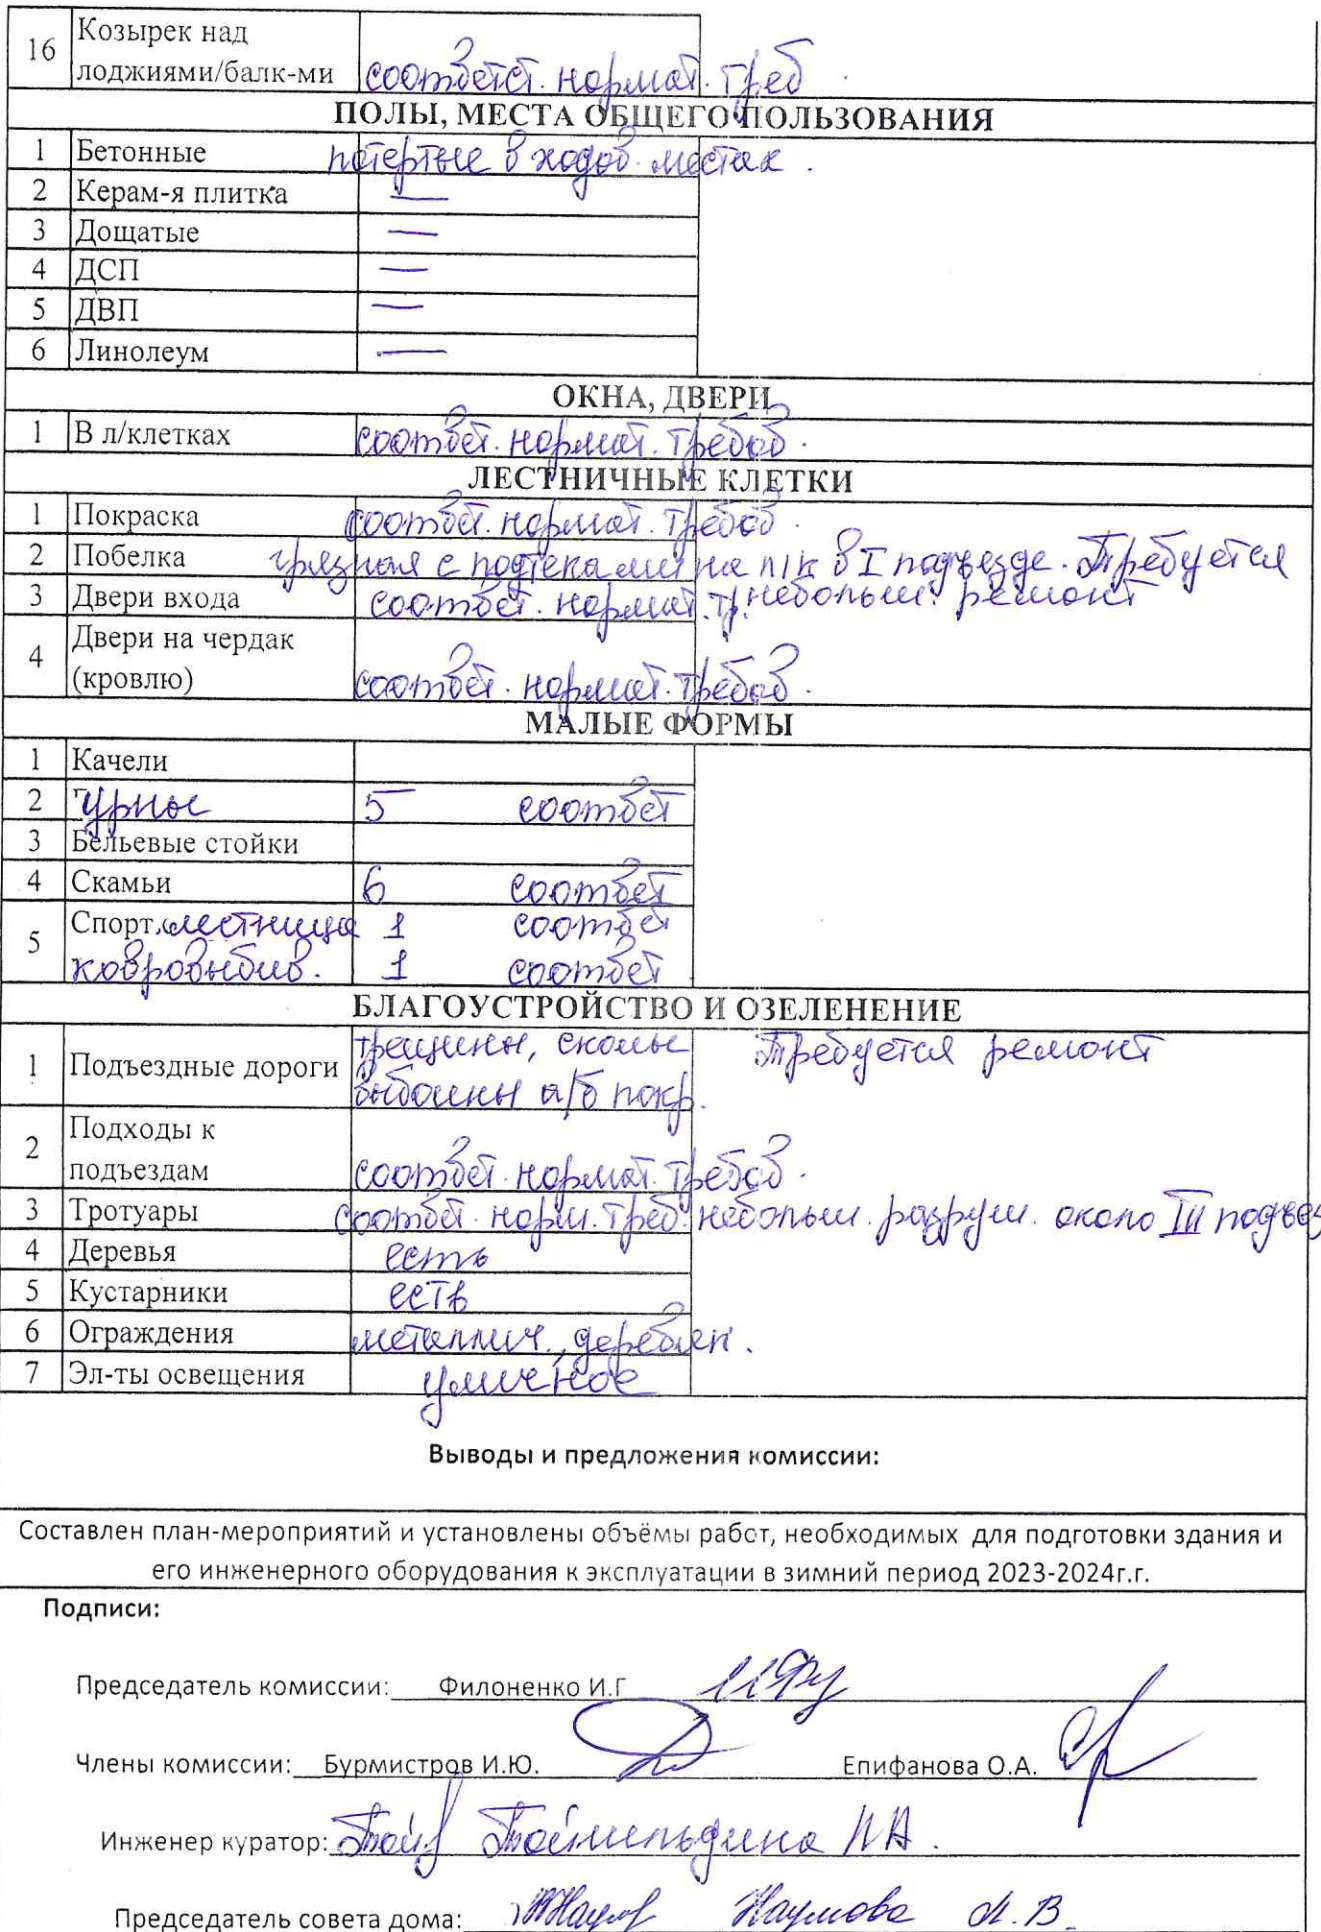 16 Козырек над
лоджиями/балк-ми соответст. нормат. треб.
ПОЛЫ, МЕСТА ОБЩЕГО ПОЛЬЗОВАНИЯ
1 Бетонные потертые в ходов. местах.
2 Керам-я плитка —
3 Дощатые —
4 ДСП —
5 ДВП —
6 Линолеум —
ОКНА, ДВЕРИ
1 В л/клетках соответ. нормат. требов.
ЛЕСТНИЧНЫЕ КЛЕТКИ
1 Покраска соответ. нормат. требов.
2 Побелка грязная с подтеками на л/к в I подъезде. Требуется
небольш. ремонт
3 Двери входа соответ. нормат. тр.
4 Двери на чердак
(кровлю) соответ. нормат. требов.
МАЛЫЕ ФОРМЫ
1 Качели
2 Урны 5 соответ
3 Бельевые стойки
4 Скамьи 6 соответ
5 Спорт. лестница 1 соответ
ковровыбив. 1 соответ
БЛАГОУСТРОЙСТВО И ОЗЕЛЕНЕНИЕ
1 Подъездные дороги трещины, сколы Требуется ремонт
выбоины а/б покр.
2 Подходы к
подъездам соответ. нормат. требов.
3 Тротуары соответ. норм. треб. небольш. разруш. около III подъез
4 Деревья есть
5 Кустарники есть
6 Ограждения металлич., деревян.
7 Эл-ты освещения уличное
Выводы и предложения комиссии:
Составлен план-мероприятий и установлены объёмы работ, необходимых для подготовки здания и
его инженерного оборудования к эксплуатации в зимний период 2023-2024г.г.
Подписи:
Председатель комиссии: Филоненко И.Г
Члены комиссии: Бурмистров И.Ю. Епифанова О.А.
Инженер куратор: Тоймильдина
Председатель совета дома: Наумова Л.В.